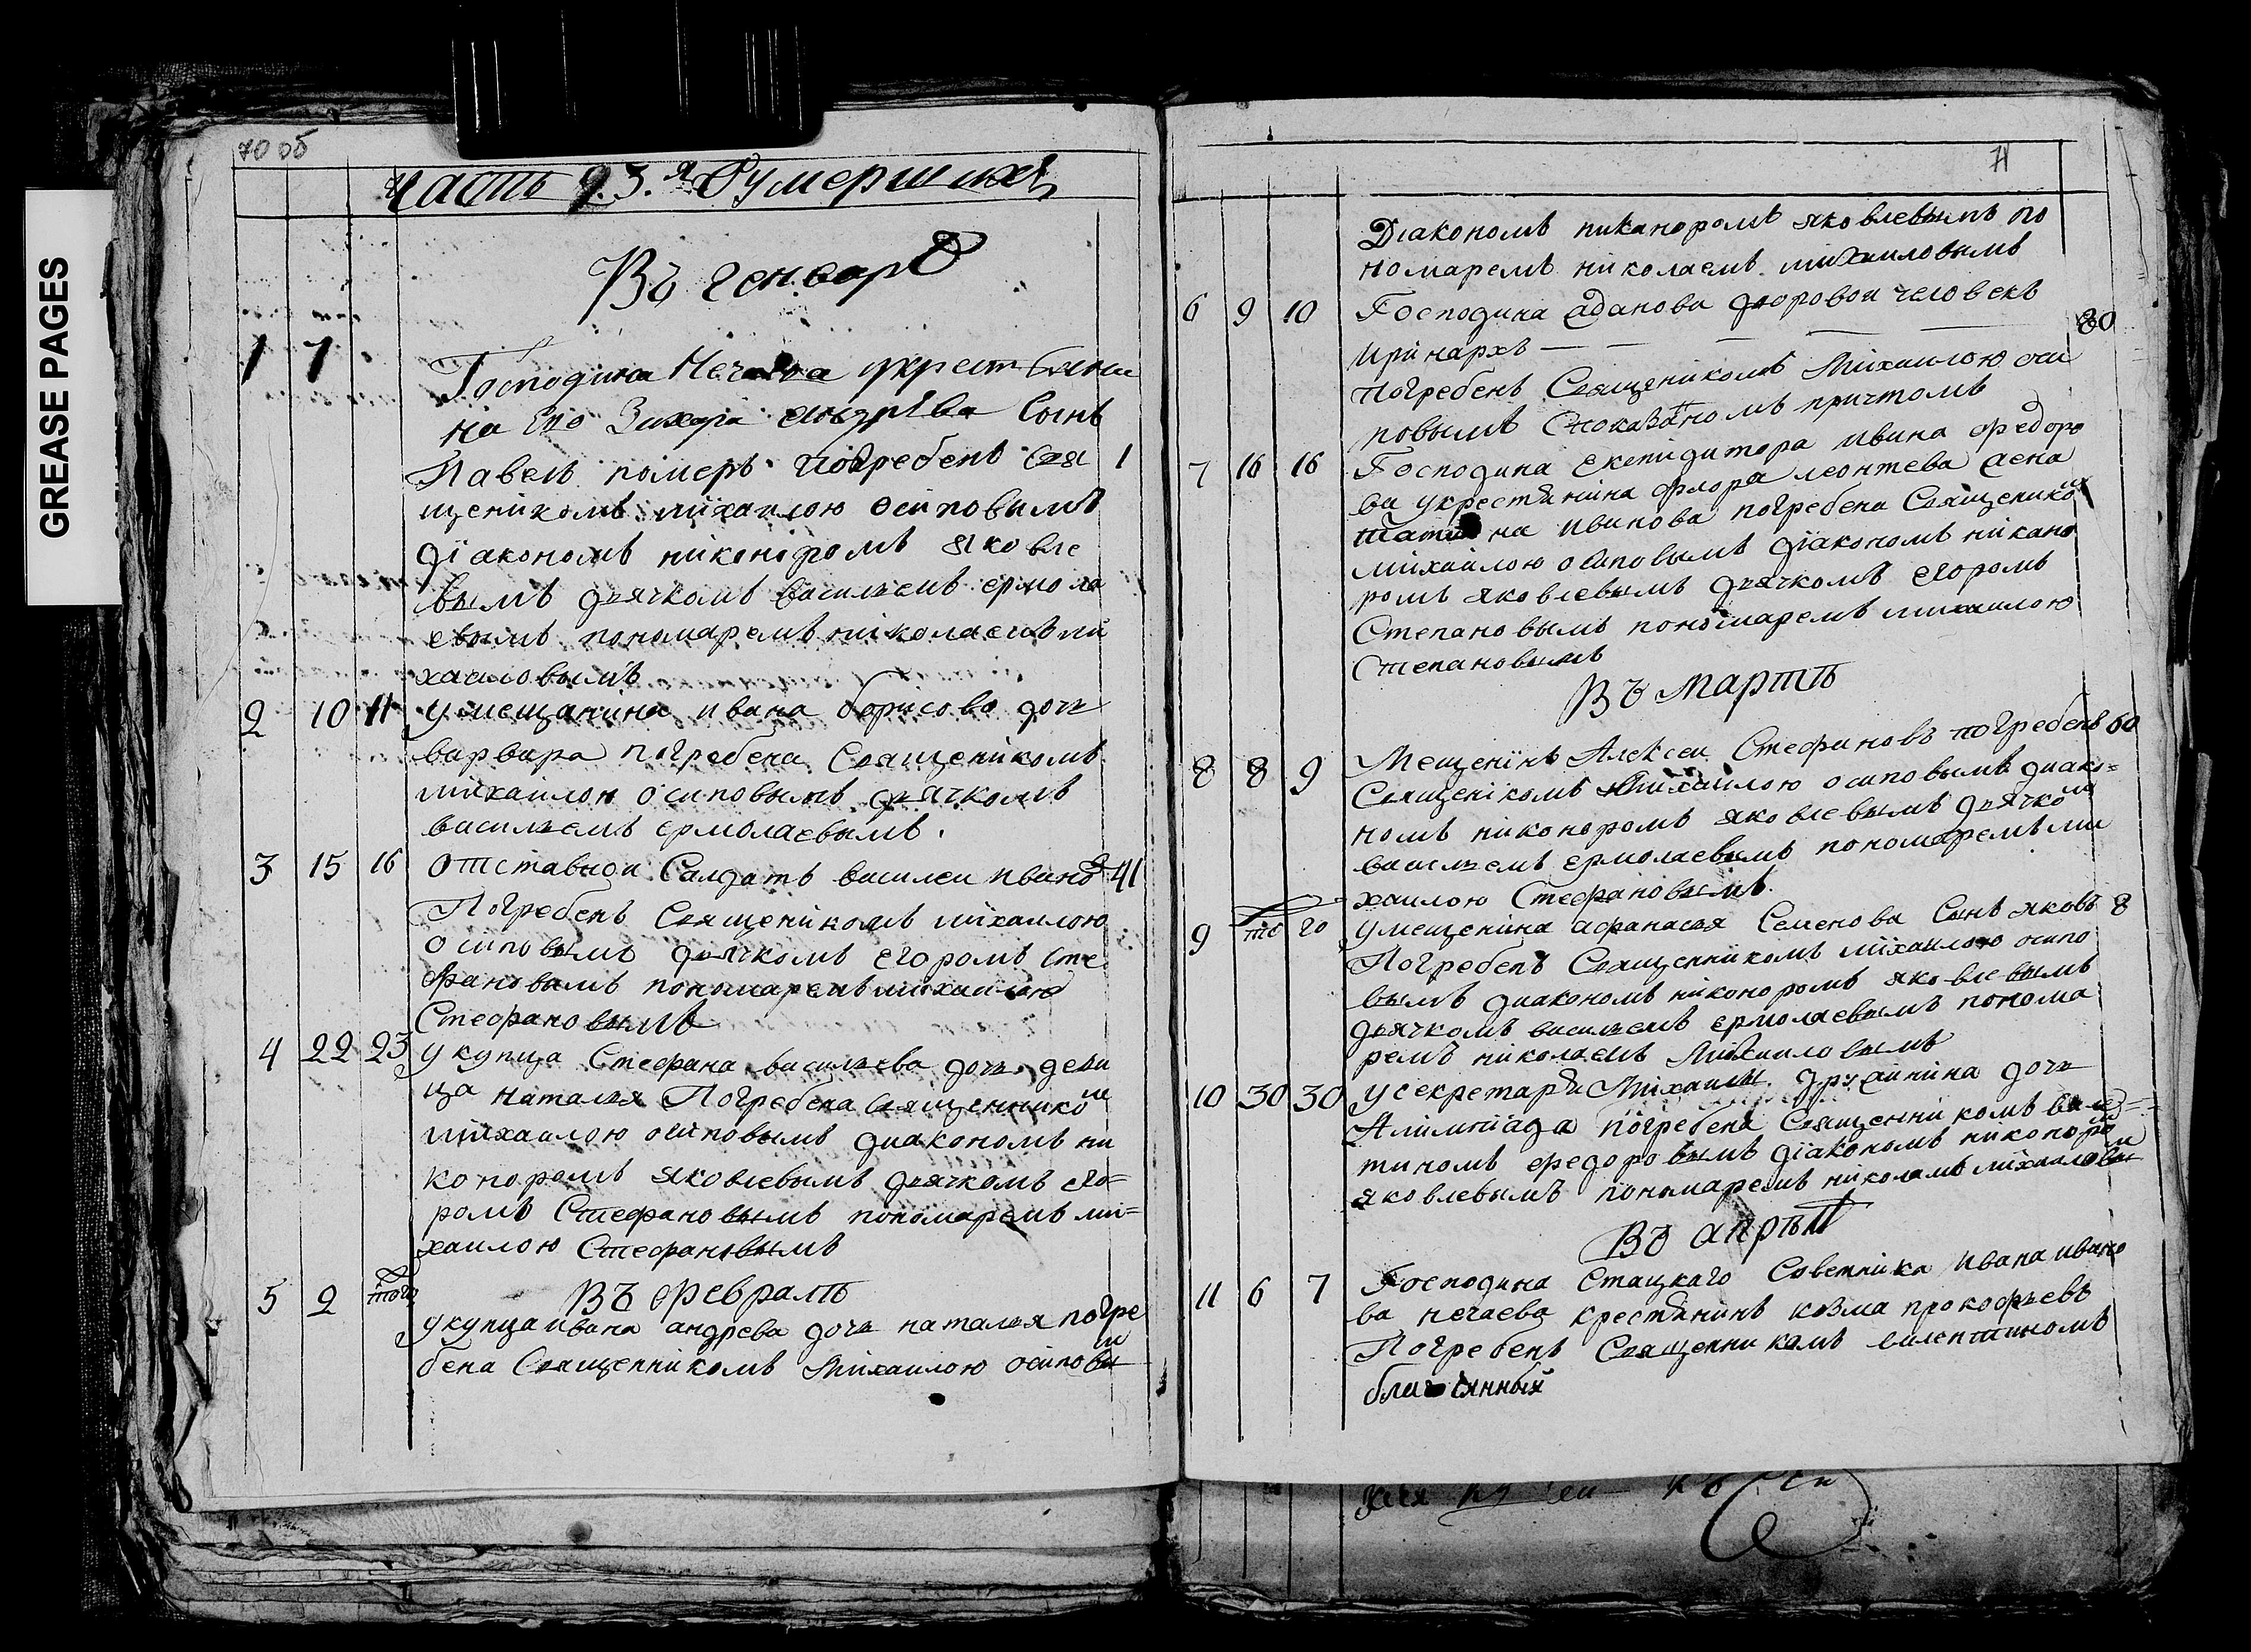 GREASE PAGES
70 об
часть 3.я О умершихъ
Въ генварѣ
1 7 Господина Нечаева укрестьяни
на его Захара андрѣева Сынъ
Павелъ померъ погребенъ Свя 1
щеникомъ михаилою осиповымъ
діакономъ никоноромъ яковле
вымъ дьячкомъ васильемъ ермола
евымъ пономаремъ николаемъ ми
хаиловымъ
2 10 11 умещанина ивана борисова дочь
варвара погребена Священикомъ
михаилою осиповымъ дьячкомъ
васильемъ ермолаевымъ.
3 15 16 отставнои Салдатъ василеи ивано 41
Погребенъ Священикомъ михаилою
осиповымъ дьячкомъ егоромъ сте
фановымъ пономаремъ михаилою
Стефановымъ
4 22 23 укупца Стефана васильева дочь деви
ца наталья Погребена Священником
михаилою осиповымъ диакономъ ни
коноромъ яковлевымъ дьячкомъ его=
ромъ Стефановымъ пономаремъ ми=
хаилою Стефановымъ
Въ февралѣ
5 2 того укупца ивана андрева дочь наталья погре
бена Священникомъ михаилою осиповым
71
Діакономъ никаноромъ яковлевымъ по
номаремъ николаемъ михаиловымъ
6 9 10 Господина аданова дворовои человекъ
иринархъ — — — — 80
погребенъ Священикомъ Михаилою оси
повымъ Споказаномъ притчомъ
7 16 16 Господина екепидитора ивана федоро
ва укрестянина флора леонтева жена
ивинова погребена Священиком
михаилою осиповымъ діакономъ никано
ромъ яковлевымъ дьячкомъ егоромъ
Степановымъ пономаремъ михаилою
Степановымъ
Въ мартѣ
8 8 9 Мещенинъ Алексеи Стефановъ погребенъ 60
Священикомъ Михаилою осиповымъ диако=
номъ никоноромъ яковлевымъ дьячком
васильемъ ермолаевымъ пономаремъ ми
хаилою Стефановымъ.
9 то го умещенина афанасья Семенова Сынъ яковъ 8
Погребенъ Священникомъ михаилою осипо
вымъ диакономъ никоноромъ яковлевымъ
дьячкомъ васильемъ ермолаевымъ понома
ремъ николаемъ Михаиловымъ
10 30 30 усекретаря Михаилы дружинина дочь
Алимпіада погребена Священникомъ вале=
тиномъ федоровымъ діакономъ никоноро
яковлевымъ пономаремъ николаемъ михаиловым
Въ апрѣл
11 6 7 Господина Стацкаго Советника ивана ивано
ва нечаева крестянинъ козма прокофьевъ
Погребенъ Священникомъ валентиномъ